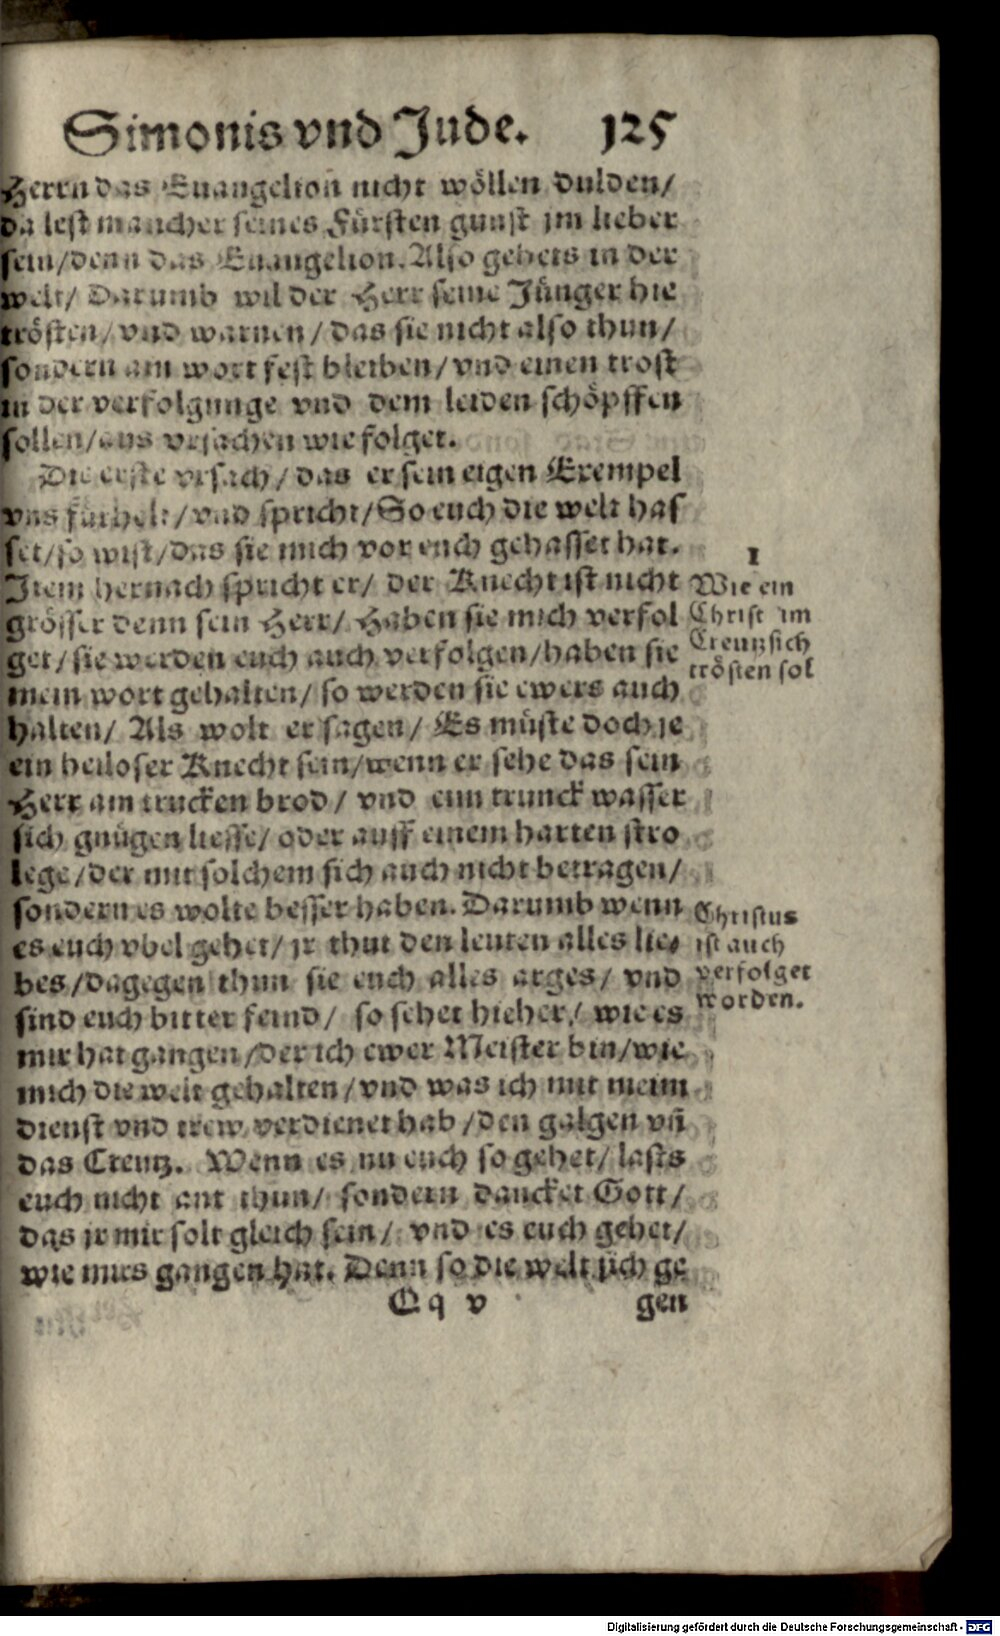 Simonis vnd Jude. 125
Herrn das Euangelion nicht wöllen dulden/
da lest mancher seines Fürsten gunst jm lieber
sein/denn das Euangelion. Also gehets in der
welt/ Darumb wil der Herr seine Jünger hie
trösten/ vnd warnen/ das sie nicht also thun/
sondern am wort fest bleiben/ vnd einen trost
in der verfolgunge vnd dem leiden schöpffen
sollen/aus vrsachen wie folget.
Die erste vrsach/ das er sein eigen Exempel
vns fürhelt/ vnd spricht/So euch die welt has
set/so wist/das sie mich vor euch gehasset hat.
Item hernach spricht er/ der Knecht ist nicht
grösser denn sein Herr/ Haben sie mich verfol
get/ sie werden euch auch verfolgen/haben sie
mein wort gehalten/ so werden sie ewers auch
halten/ Als wolt er sagen/ Es müste doch je
ein heiloser Knecht sein/wenn er sehe das sein
Herr am trucken brod/ vnd eim trunck wasser
sich gnügen liesse/ oder auff einem harten stro
lege/der mit solchem sich auch nicht betragen/
sondern es wolte besser haben. Darumb wenn
es euch vbel gehet/ jr thut den leuten alles lie-
bes/dagegen thun sie euch alles arges/ vnd
sind euch bitter feind/ so sehet hieher/ wie es
mir hat gangen/der ich ewer Meister bin/wie
mich die welt gehalten/vnd was ich mit meim
dienst vnd trew verdienet hab/den galgen vñ
das Creutz. Wenn es nu euch so gehet/ lasts
euch nicht ant thun/ sondern dancket Gott/
das jr mir solt gleich sein/ vnd es euch gehet/
wie mirs gangen hat. Denn so die welt sich ge
Qq v gen
1
Wie ein
Christ im
Creutz sich
trösten sol
Christus
ist auch
verfolget
worden.
Digitalisierung gefördert durch die Deutsche Forschungsgemeinschaft - DFG